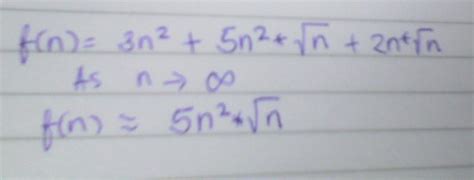 f(n) = 3n² + 5n² * √n + 2n * √n
As n → ∞
f(n) ≈ 5n² * √n